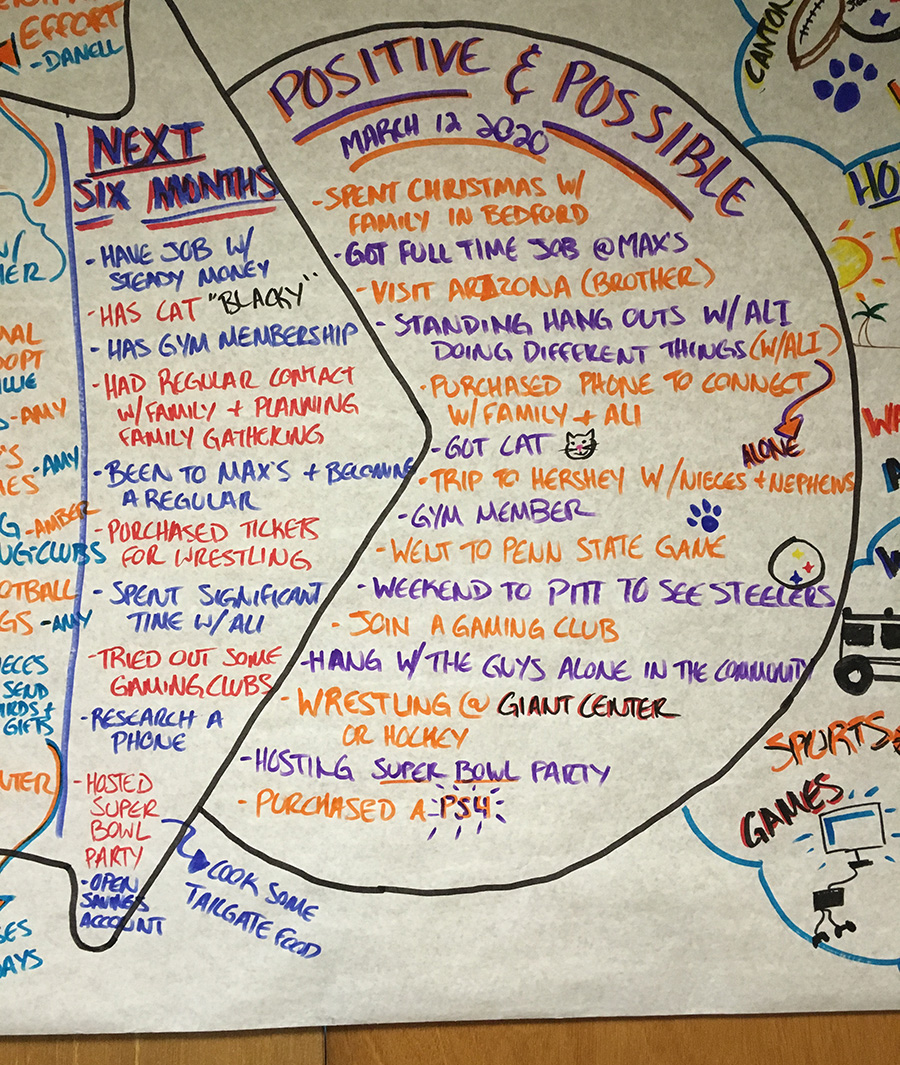 EFFORT
-DANELL
NEXT
SIX MONTHS
- HAVE JOB W/
STEADY MONEY
- HAS CAT "BLACKY"
- HAS GYM MEMBERSHIP
- HAD REGULAR CONTACT
W/FAMILY + PLANNING
FAMILY GATHERING
- BEEN TO MAX'S + BECOMING
A REGULAR
- PURCHASED TICKETS
FOR WRESTLING
- SPENT SIGNIFICANT
TIME W/ ALI
- TRIED OUT SOME
GAMING CLUBS
- RESEARCH A
PHONE
- HOSTED
SUPER
BOWL
PARTY
- OPEN
SAVINGS
ACCOUNT
COOK SOME
TAILGATE FOOD
POSITIVE & POSSIBLE
MARCH 12 2020
- SPENT CHRISTMAS W/
FAMILY IN BEDFORD
- GOT FULL TIME JOB @MAX'S
- VISIT ARIZONA (BROTHER)
- STANDING HANG OUTS W/ALI
DOING DIFFERENT THINGS (W/ALI)
ALONE
- PURCHASED PHONE TO CONNECT
W/FAMILY + ALI
- GOT CAT
- TRIP TO HERSHEY W/NIECES + NEPHEWS
- GYM MEMBER
- WENT TO PENN STATE GAME
- WEEKEND TO PITT TO SEE STEELERS
- JOIN A GAMING CLUB
- HANG W/THE GUYS ALONE IN THE COMMUNITY
- WRESTLING @ GIANT CENTER
OR HOCKEY
- HOSTING SUPER BOWL PARTY
- PURCHASED A PS4
-AMY
-AMY
-AMBER
-CLUBS
-AMY
SEND
GIFTS
CANTON
SPORTS
GAMES